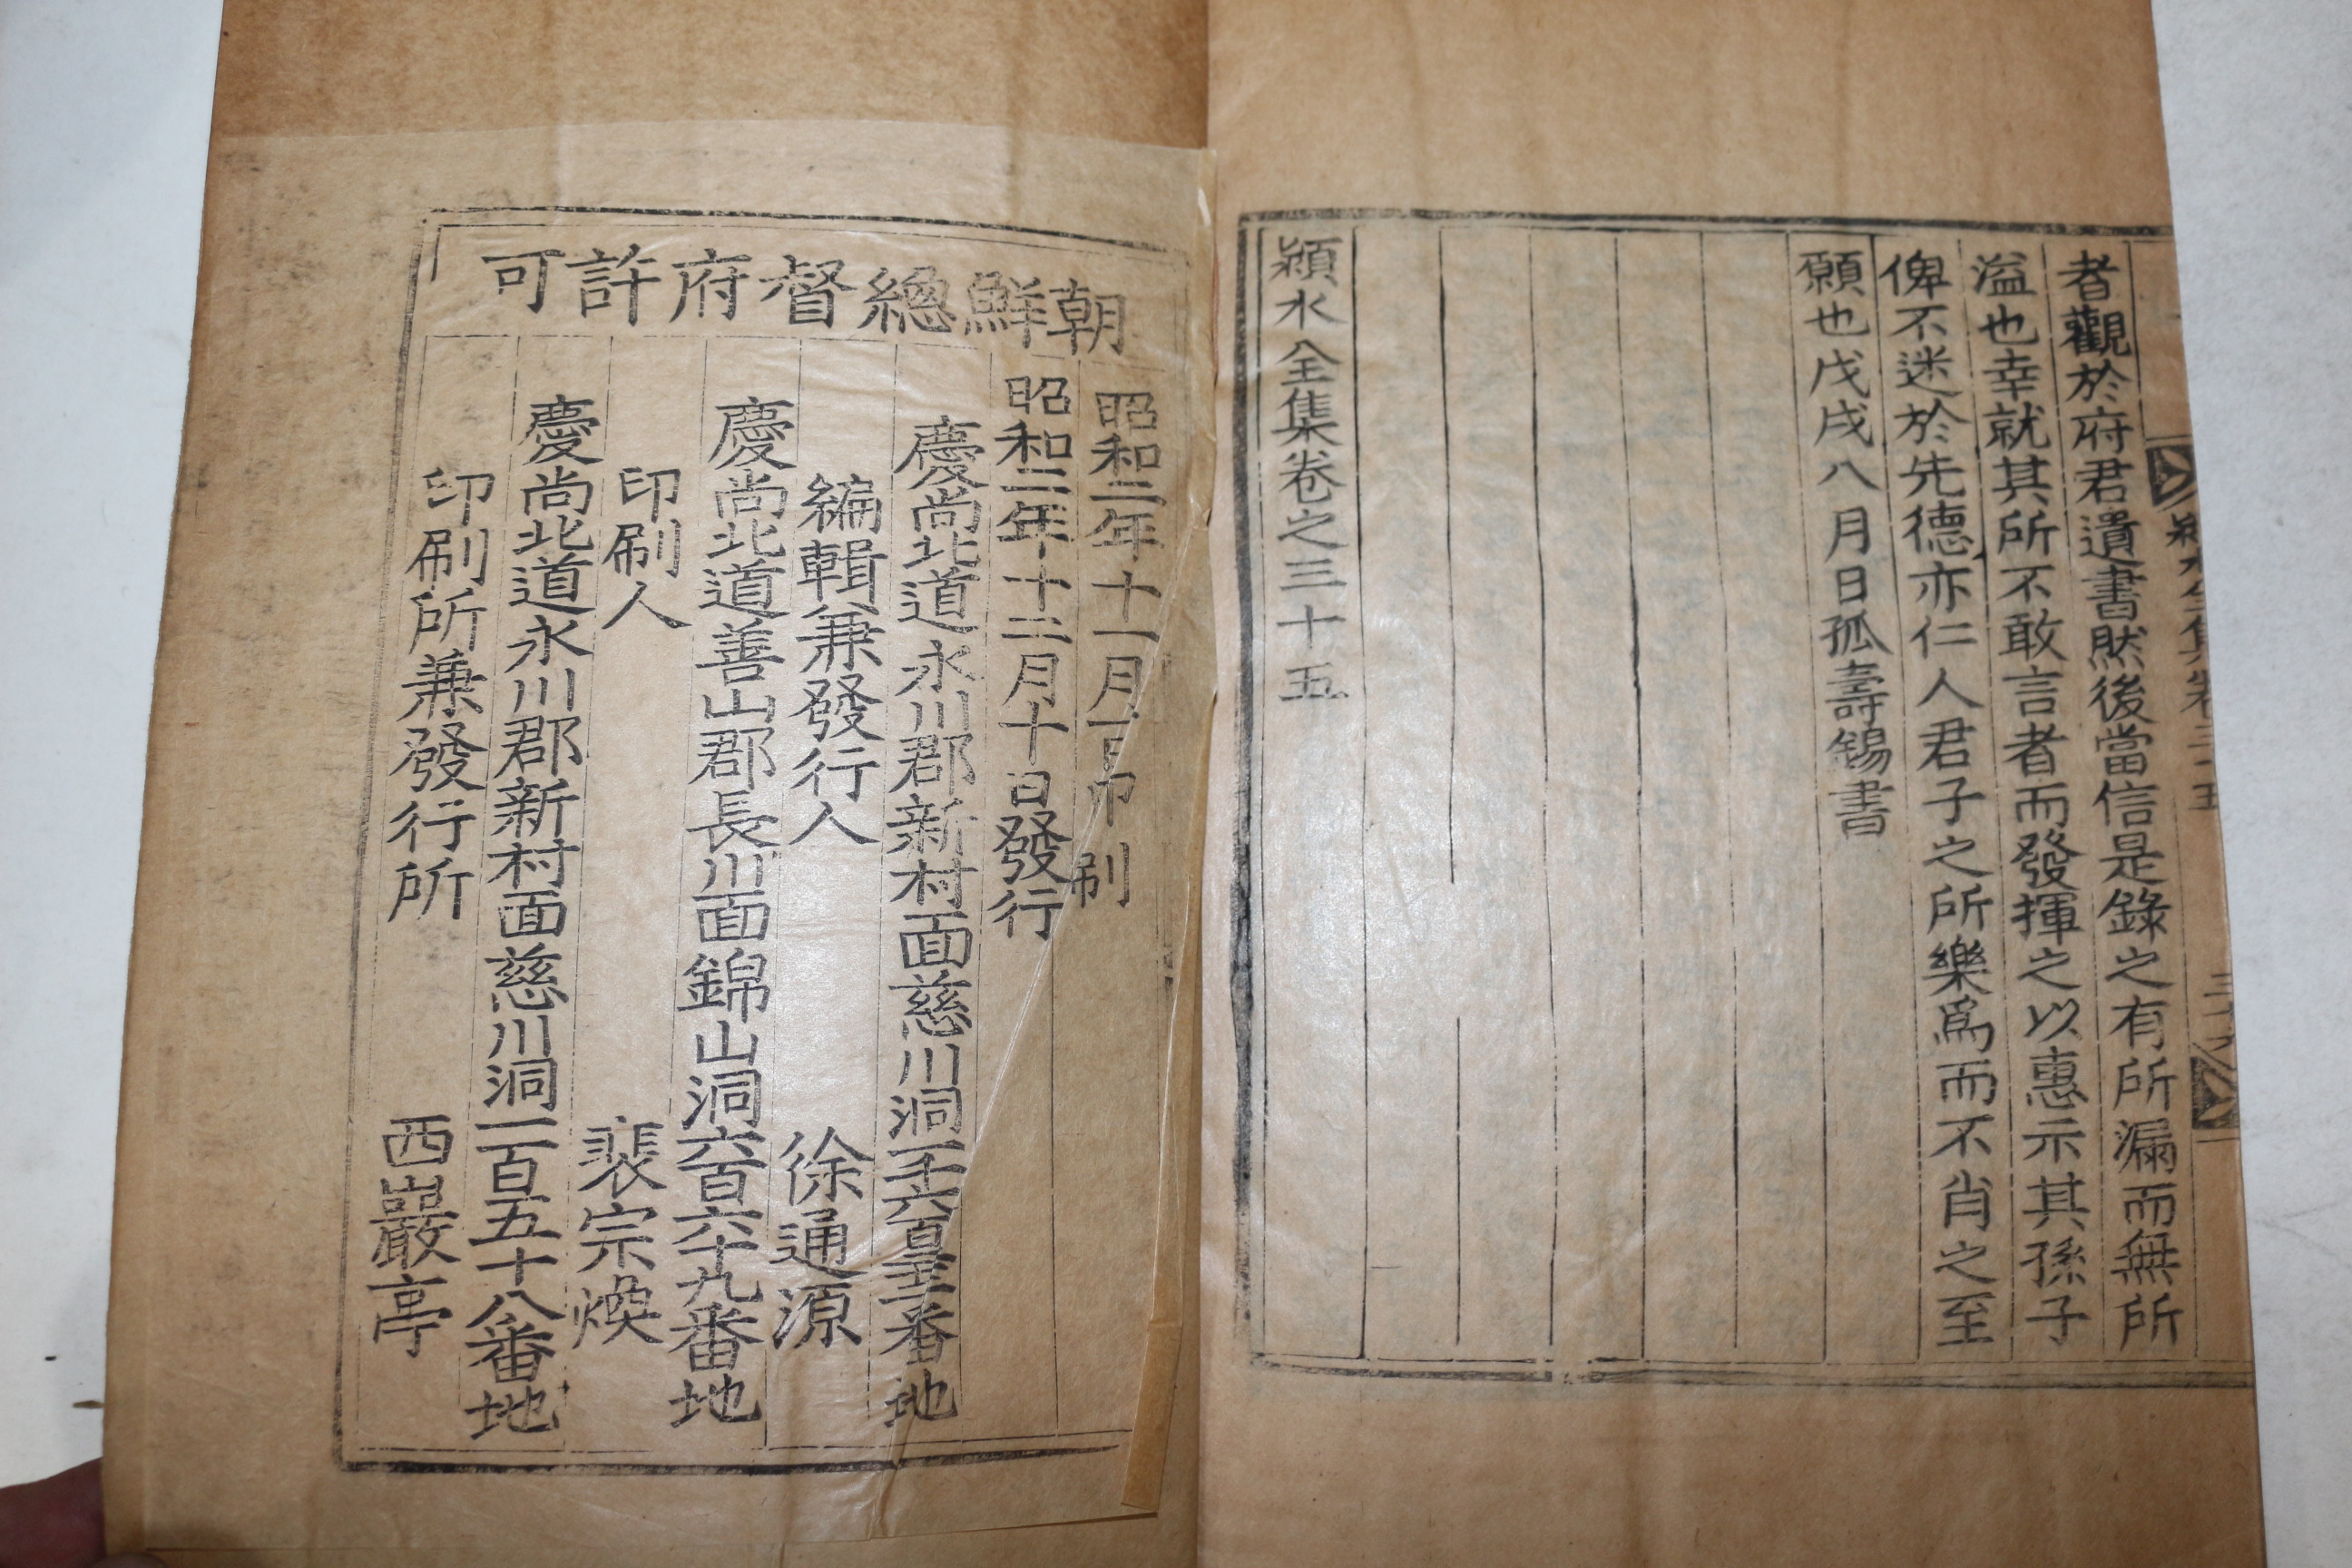 者觀於府君遺書然後當信是錄之有所漏而無所
溢也幸就其所不敢言者而發揮之以惠示其孫子
俾不迷於先德亦仁人君子之所樂爲而不肖之至
願也戊戌八月日孤壽錫書
潁水全集卷之三十五
朝鮮總督府許可
昭和二年十一月一日印刷
昭和二年十二月十日發行
慶尚北道永川郡新村面慈川洞一千六百三十二番地
編輯兼發行人 徐通源
慶尚北道善山郡長川面錦山洞六百六十九番地
印刷人 裴宗煥
慶尚北道永川郡新村面慈川洞一百五十八番地
印刷所兼發行所 西巖亭